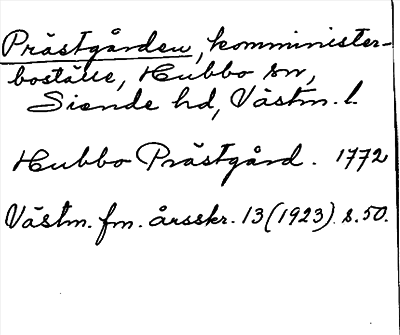 Prästgården, komminister-
boställe, Hubbo sn,
Siende hd, Västm. l.
Hubbo Prästgård. 1772
Västm. fm. årsskr. 13 (1923) s. 50.